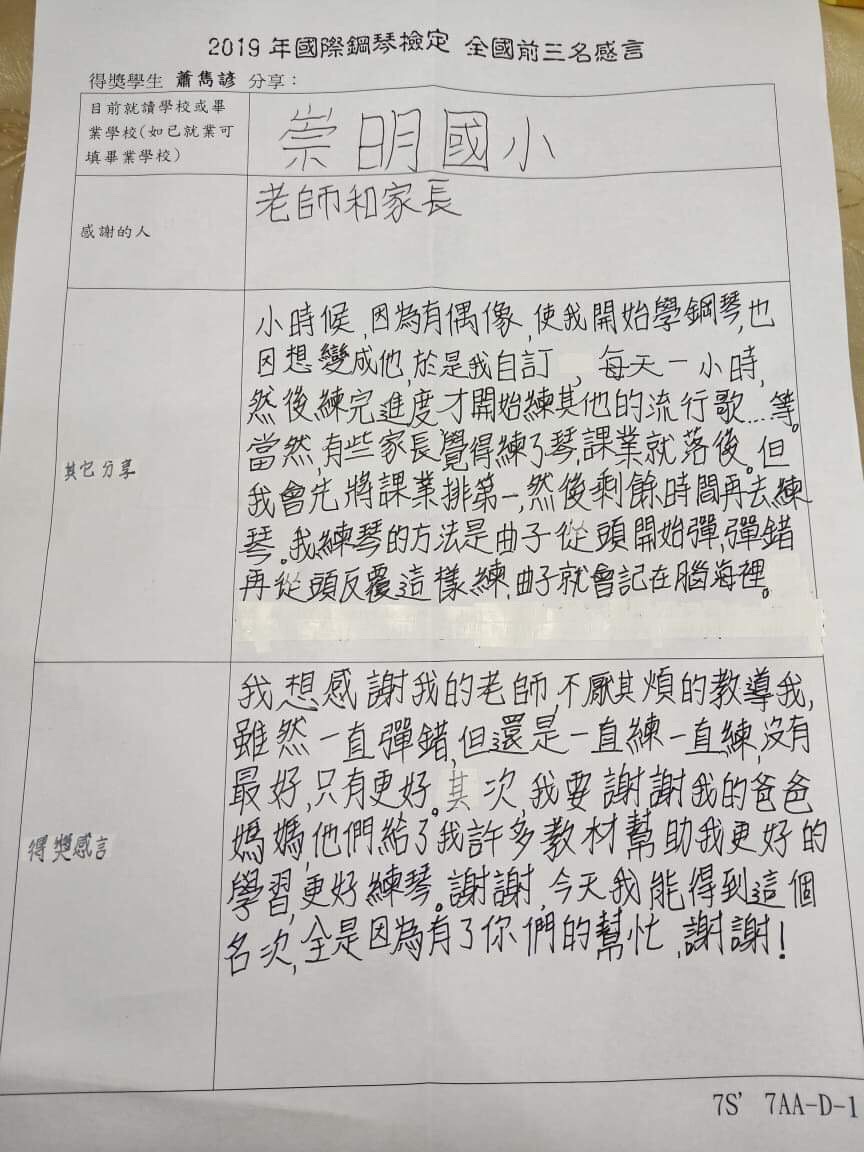 2019年國際鋼琴檢定 全國前三名感言
得獎學生 蕭雋諺 分享：
目前就讀學校或畢
業學校(如已就業可
填畢業學校)
崇明國小
感謝的人
老師和家長
其它分享
小時候,因為有偶像,使我開始學鋼琴,也
因想變成他,於是我自訂 ,每天一小時,
然後練完進度才開始練其他的流行歌...等。
當然,有些家長覺得練了琴,課業就落後。但
我會先將課業排第一,然後剩餘時間再去練
琴。我練琴的方法是曲子從頭開始彈,彈錯
再從頭反覆這樣練,曲子就會記在腦海裡。
得獎感言
我想感謝我的老師,不厭其煩的教導我,
雖然一直彈錯,但還是一直練一直練,沒有
最好,只有更好。其次,我要謝謝我的爸爸
媽媽,他們給了我許多教材幫助我更好的
學習,更好練琴。謝謝,今天我能得到這個
名次,全是因為有了你們的幫忙,謝謝!
7S' 7AA-D-1